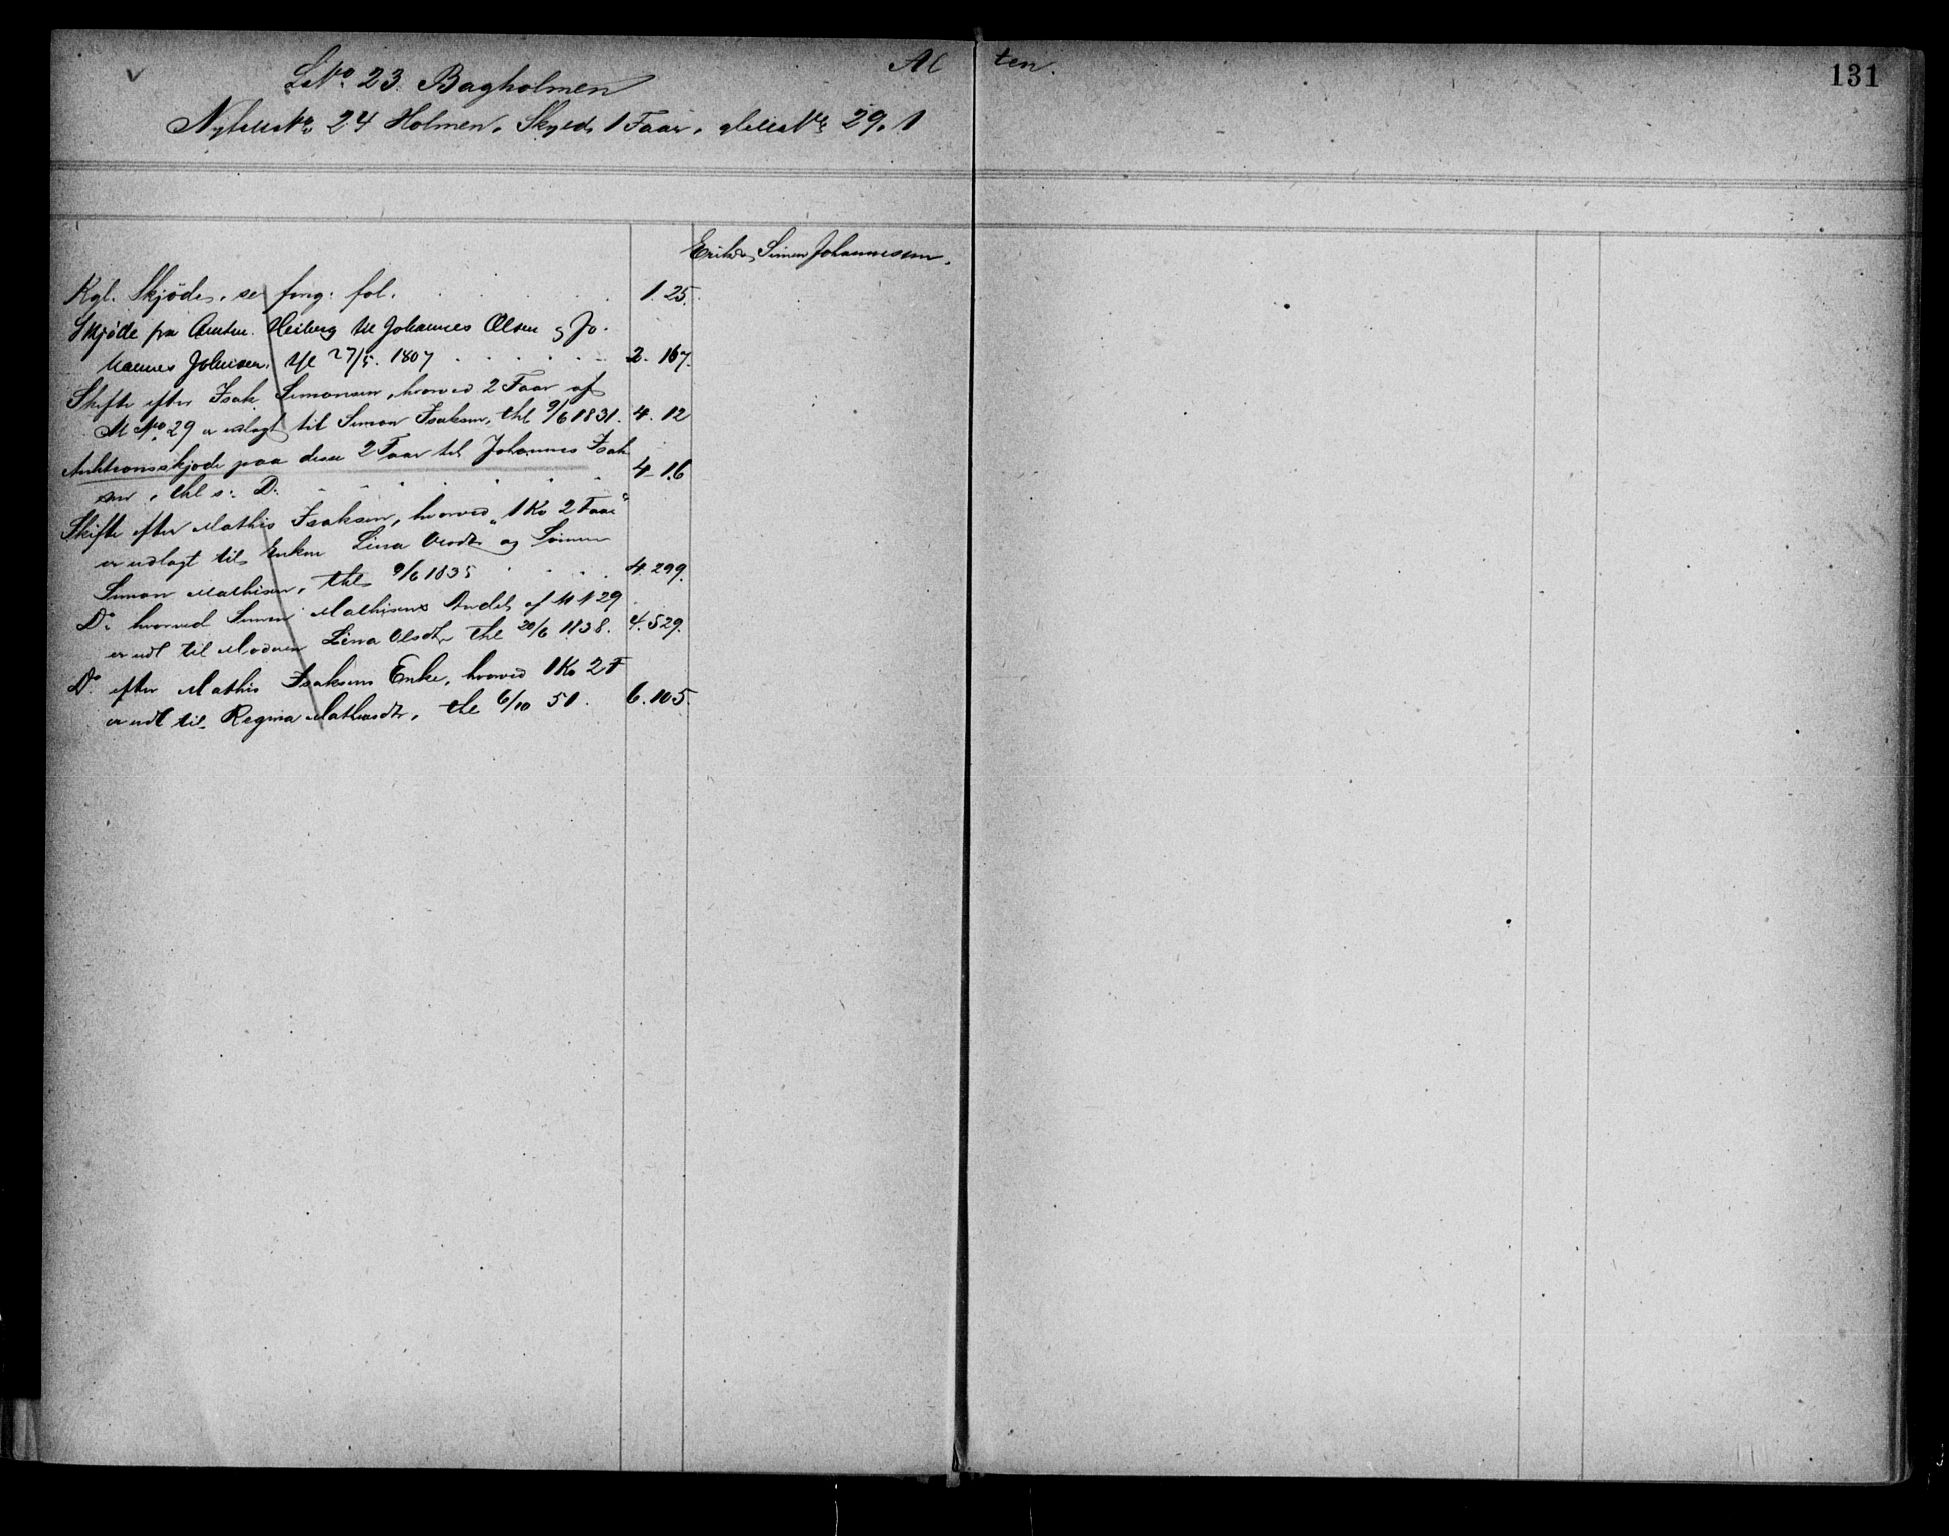 Al ten. 131
LNo. 23. Bagholmen
No. 24 Holmen. Skyld, 1 Faar. No 29. 1
Erik Simon Johannesen.
Kgl. Skjöde, se forrg: fol. 1. 25.
Skjöde fra Amtm. Heiberg til Johannes Olsen og Jo-
hannes Johnsen, thl 27/5. 1807 2. 167.
Skifte efter Isak Simonsen, hvorved 2 Faar af
M No. 29 er udlagt til Simon Isaksen, thl 9/6 1831. 4. 12
Auktionsskjøde paa disse 2 Faar til Johannes Isak
sen, thl s: D. 4 - 16
Skifte efter Mathis Isaksen, hvorved "1 Ko 2 Faar"
er udlagt til Enken Lina Olsdt og Sønnen
Simon Mathisen, thl 9/6 1835 4. 299.
Do. hvorved Simon Mathisens Andel af M N 29
er udl til Moderen Lina Olsdtr thl 20/6 1838. 4. 529.
Do. efter Mathis Isaksens Enke, hvorved 1 Ko 2 F
er udl til Regina Mathisdtr, thl 6/10 51. 6. 105.